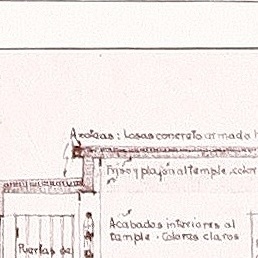 Azoteas: Losas concreto armado h
Friso y plafón al temple, color
Acabados interiores al
temple. Colores claros
Puertas de